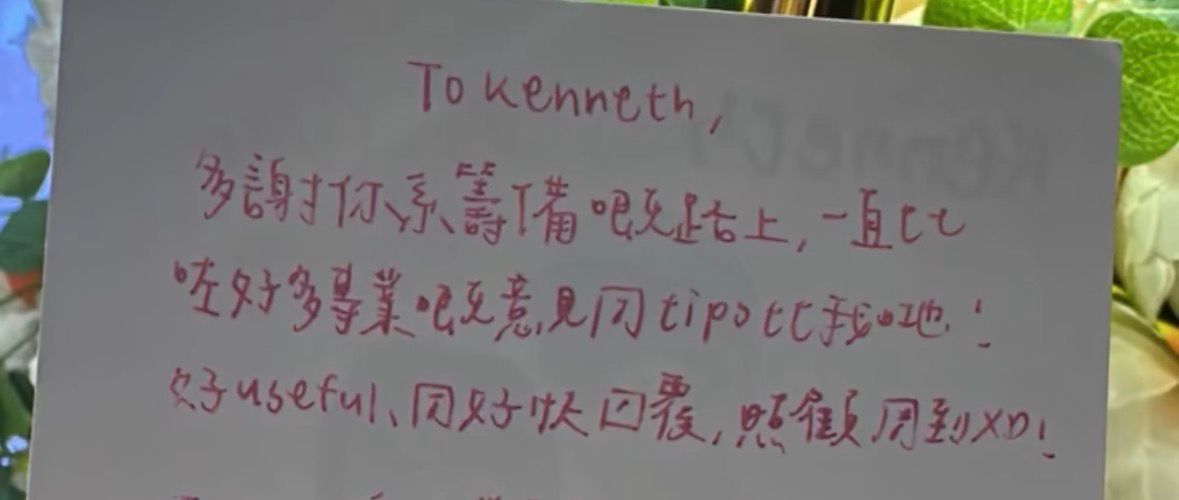 To Kenneth,
多謝你系籌備嘅路上,一直比
咗好多專業嘅意見同tips比我哋!
好useful、同好快回覆,照顧周到XD!